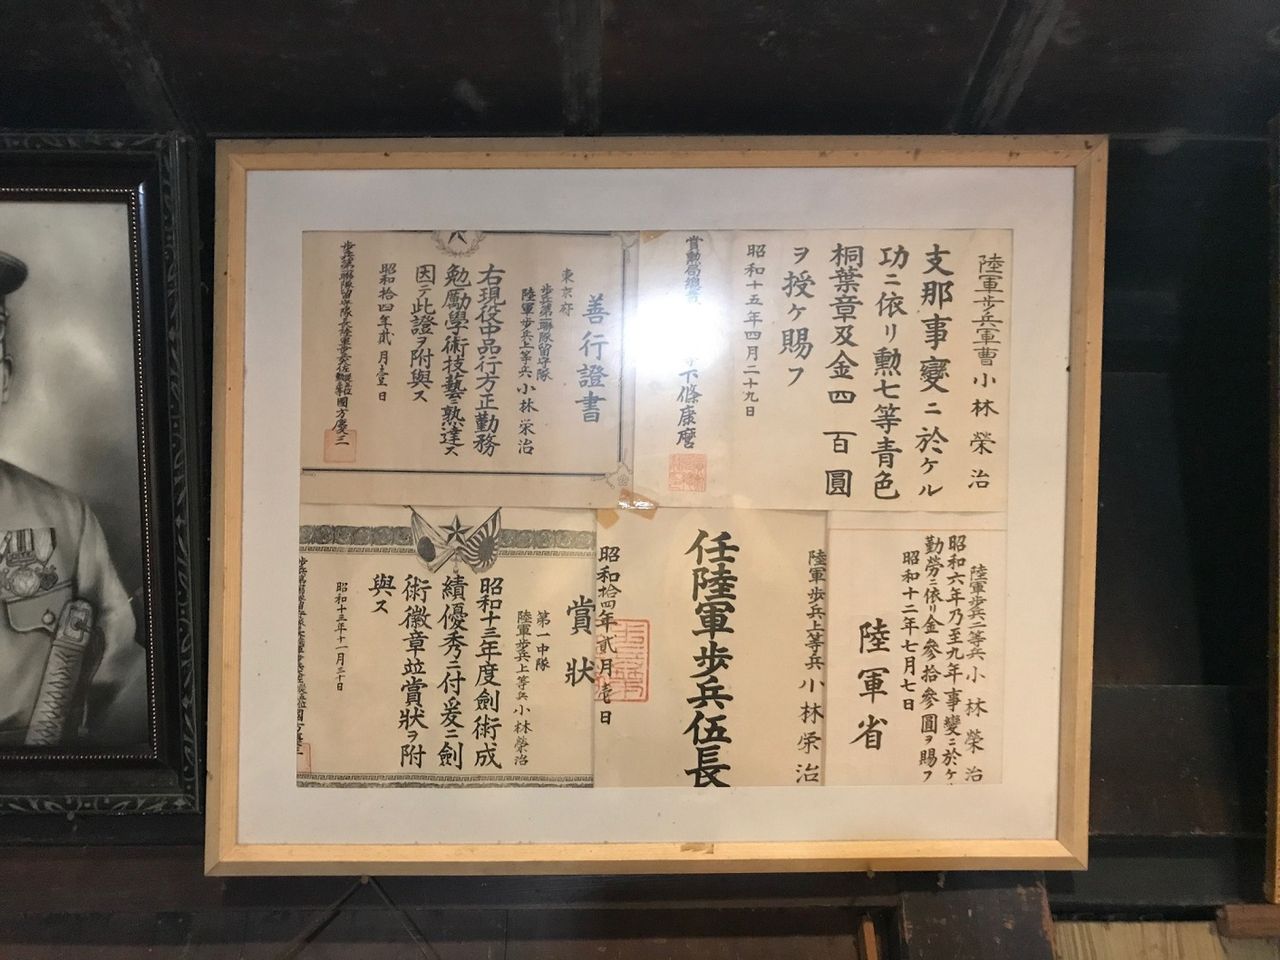 陸軍歩兵軍曹小林榮治
支那事變ニ於ケル
功ニ依リ勲七等青色
桐葉章及金四百圓
ヲ授ケ賜フ
昭和十五年四月二十九日
賞勲局總裁
下條康麿
善行證書
東京府
歩兵第一聯隊留守隊
陸軍歩兵上等兵小林榮治
右現役中品行方正勤務
勉勵學術技藝ニ熟達ス
因テ此證ヲ附與ス
昭和拾四年貳月壹日
國方慶三
陸軍歩兵一等兵小林榮治
昭和六年乃至九年事變ニ於ケ
勤勞ニ依リ金參拾參圓ヲ賜フ
昭和十二年七月七日
陸軍省
陸軍歩兵上等兵小林栄治
任陸軍歩兵伍長
昭和拾四年貳月壱日
賞狀
第一中隊
陸軍歩兵上等兵小林榮治
昭和十三年度劍術成
績優秀ニ付爰ニ劍
術徽章竝賞狀ヲ附
與ス
昭和十三年十一月三十日